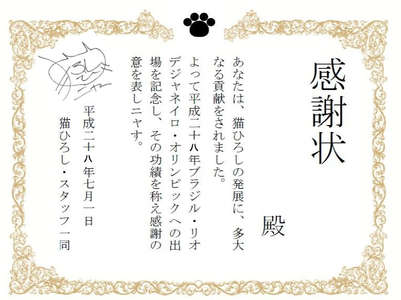 感謝状
殿
あなたは、猫ひろしの発展に、多大
なる貢献をされました。
よって平成二十八年ブラジル・リオ
デジャネイロ・オリンピックへの出
場を記念し、その功績を称え感謝の
意を表しニャす。
平成二十八年七月一日
猫ひろし・スタッフ一同